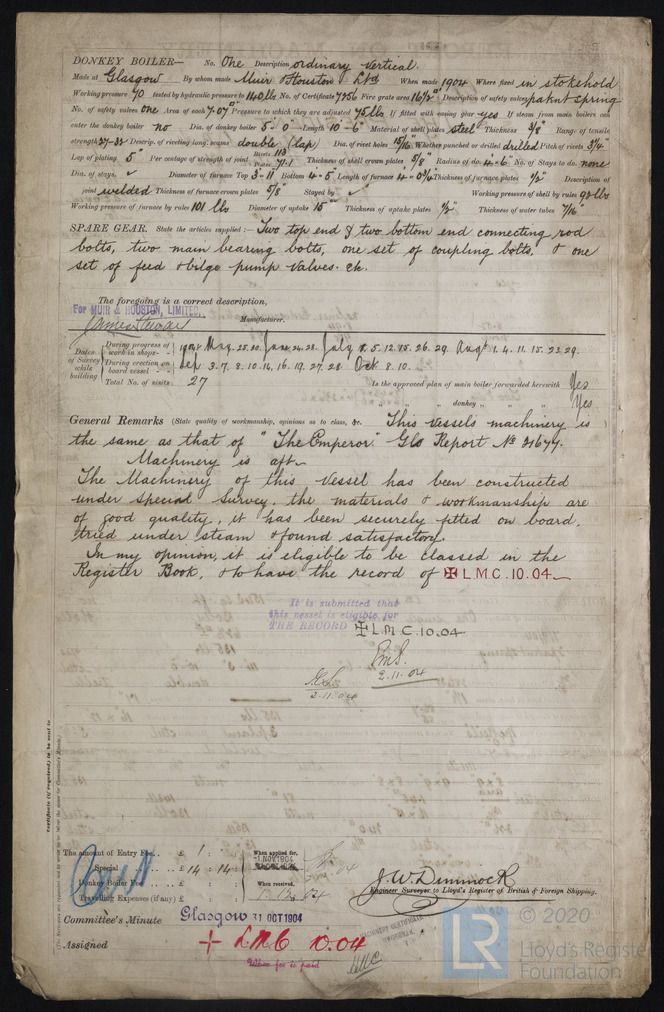 DONKEY BOILER— No. One Description ordinary vertical.
Made at Glasgow By whom made Muir & Houston Ltd When made 1904 Where fixed in stokehold
Working pressure 70 tested by hydraulic pressure to 140 lbs No. of Certificate 7256 Fire grate area 16½ □' Description of safety valves patent spring
No. of safety valves one Area of each 7.07 □" Pressure to which they are adjusted 75 lbs If fitted with easing gear yes If steam from main boilers can
enter the donkey boiler no Dia. of donkey boiler 5'-0" Length 10'-6" Material of shell plates steel Thickness 3/8" Range of tensile
strength 27-32 Descrip. of riveting long. seams double (lap) Dia. of rivet holes 13/16" Whether punched or drilled drilled Pitch of rivets
Lap of plating 5" Per centage of strength of joint Rivets 113 Plates 71.1 Thickness of shell crown plates 5/8" Radius of do. 4'-6" No. of Stays to do. none
Dia. of stays. ✓ Diameter of furnace Top 3'-11" Bottom 4'-5" Length of furnace 4'-0¾" Thickness of furnace plates ½" Description of
joint welded Thickness of furnace crown plates 5/8" Stayed by ✓ Working pressure of shell by rules 92 lbs
Working pressure of furnace by rules 101 lbs Diameter of uptake 15" Thickness of uptake plates ½" Thickness of water tubes 7/16"
SPARE GEAR. State the articles supplied:— Two top end & two bottom end connecting rod
bolts, two main bearing bolts, one set of coupling bolts, & one
set of feed & bilge pump valves. &c.
The foregoing is a correct description,
For MUIR & HOUSTON, LIMITED,
Manufacturer.
Dates of Survey while building
During progress of work in shops - - 1904 May. 25. 30. June 24. 28. July 8. 5. 12. 15. 26. 29. Augt 1. 4. 11. 15. 23. 29.
During erection on board vessel - - - Sep 3. 7. 8. 10. 14. 16. 19. 27. 28 Oct. 8. 10.
Total No. of visits 27 Is the approved plan of main boiler forwarded herewith Yes
" " " donkey " " " Yes
General Remarks (State quality of workmanship, opinions as to class, &c. This vessels machinery is
the same as that of "The Emperor" Gls Report No 21677.
Machinery is aft.
The Machinery of this Vessel has been constructed
under Special Survey, the materials & workmanship are
of good quality, it has been securely fitted on board,
tried under steam & found satisfactory.
In my opinion, it is eligible to be classed in the
Register Book, & to have the record of ✠ L.M.C. 10.04
It is submitted that
this vessel is eligible for
THE RECORD ✠ L.M.C. 10.04
2.11.04
2.11.04
Certificate (if required) to be sent to
The amount of Entry Fee . . £ 1 : :
Special . . . . £ 14 : 14 :
Donkey Boiler Fee . . . £ : :
Travelling Expenses (if any) £ : :
When applied for,
1 NOV 1904
When received,
J. W. Dimmock
Engineer Surveyor to Lloyd's Register of British & Foreign Shipping.
Committee's Minute Glasgow 31 OCT 1904
Assigned + LMC 10.04
When fee is paid
MACHINERY CERTIFICATE
© 2020
LR
Lloyd's Register
Foundation